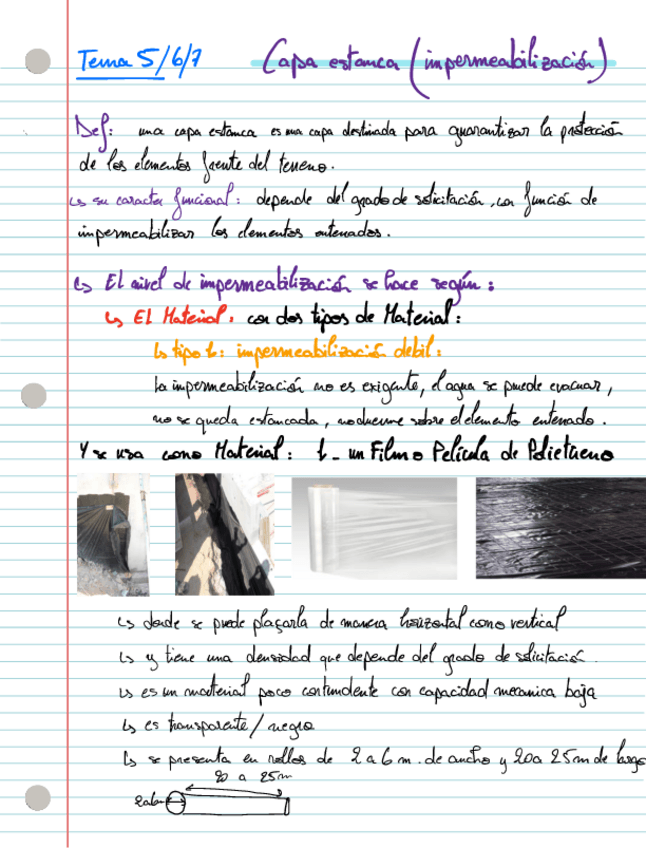 Tema 5/6/7
Capa estanca (impermeabilización)
Def: una capa estanca es una capa destinada para guarantizar la protección
de los elementos frente del terreno.
↳ su caracter funcional: depende del grado de solicitación, con función de
impermeabilizar los elementos enterrados.
↳ El nivel de impermeabilización se hace según:
↳ El Material. con dos tipos de Material:
↳ tipo 1: impermeabilización debil:
la impermeabilización no es exigente, el agua se puede evacuar,
no se queda estancada, sobre el elemento enterrado.
Y se usa como Material: 1_ un Film o Película de Polietireno
↳ donde se puede plaçarla de manera horizontal como vertical
↳ y tiene una densidad que depende del grado de solicitación.
↳ es un material poco contundente con capacidad mecanica baja
↳ es transparente/negro
↳ se presenta en rollos de 2 a 6 m. de ancho y 20 a 25m de largo
20 a 25m
2a6m